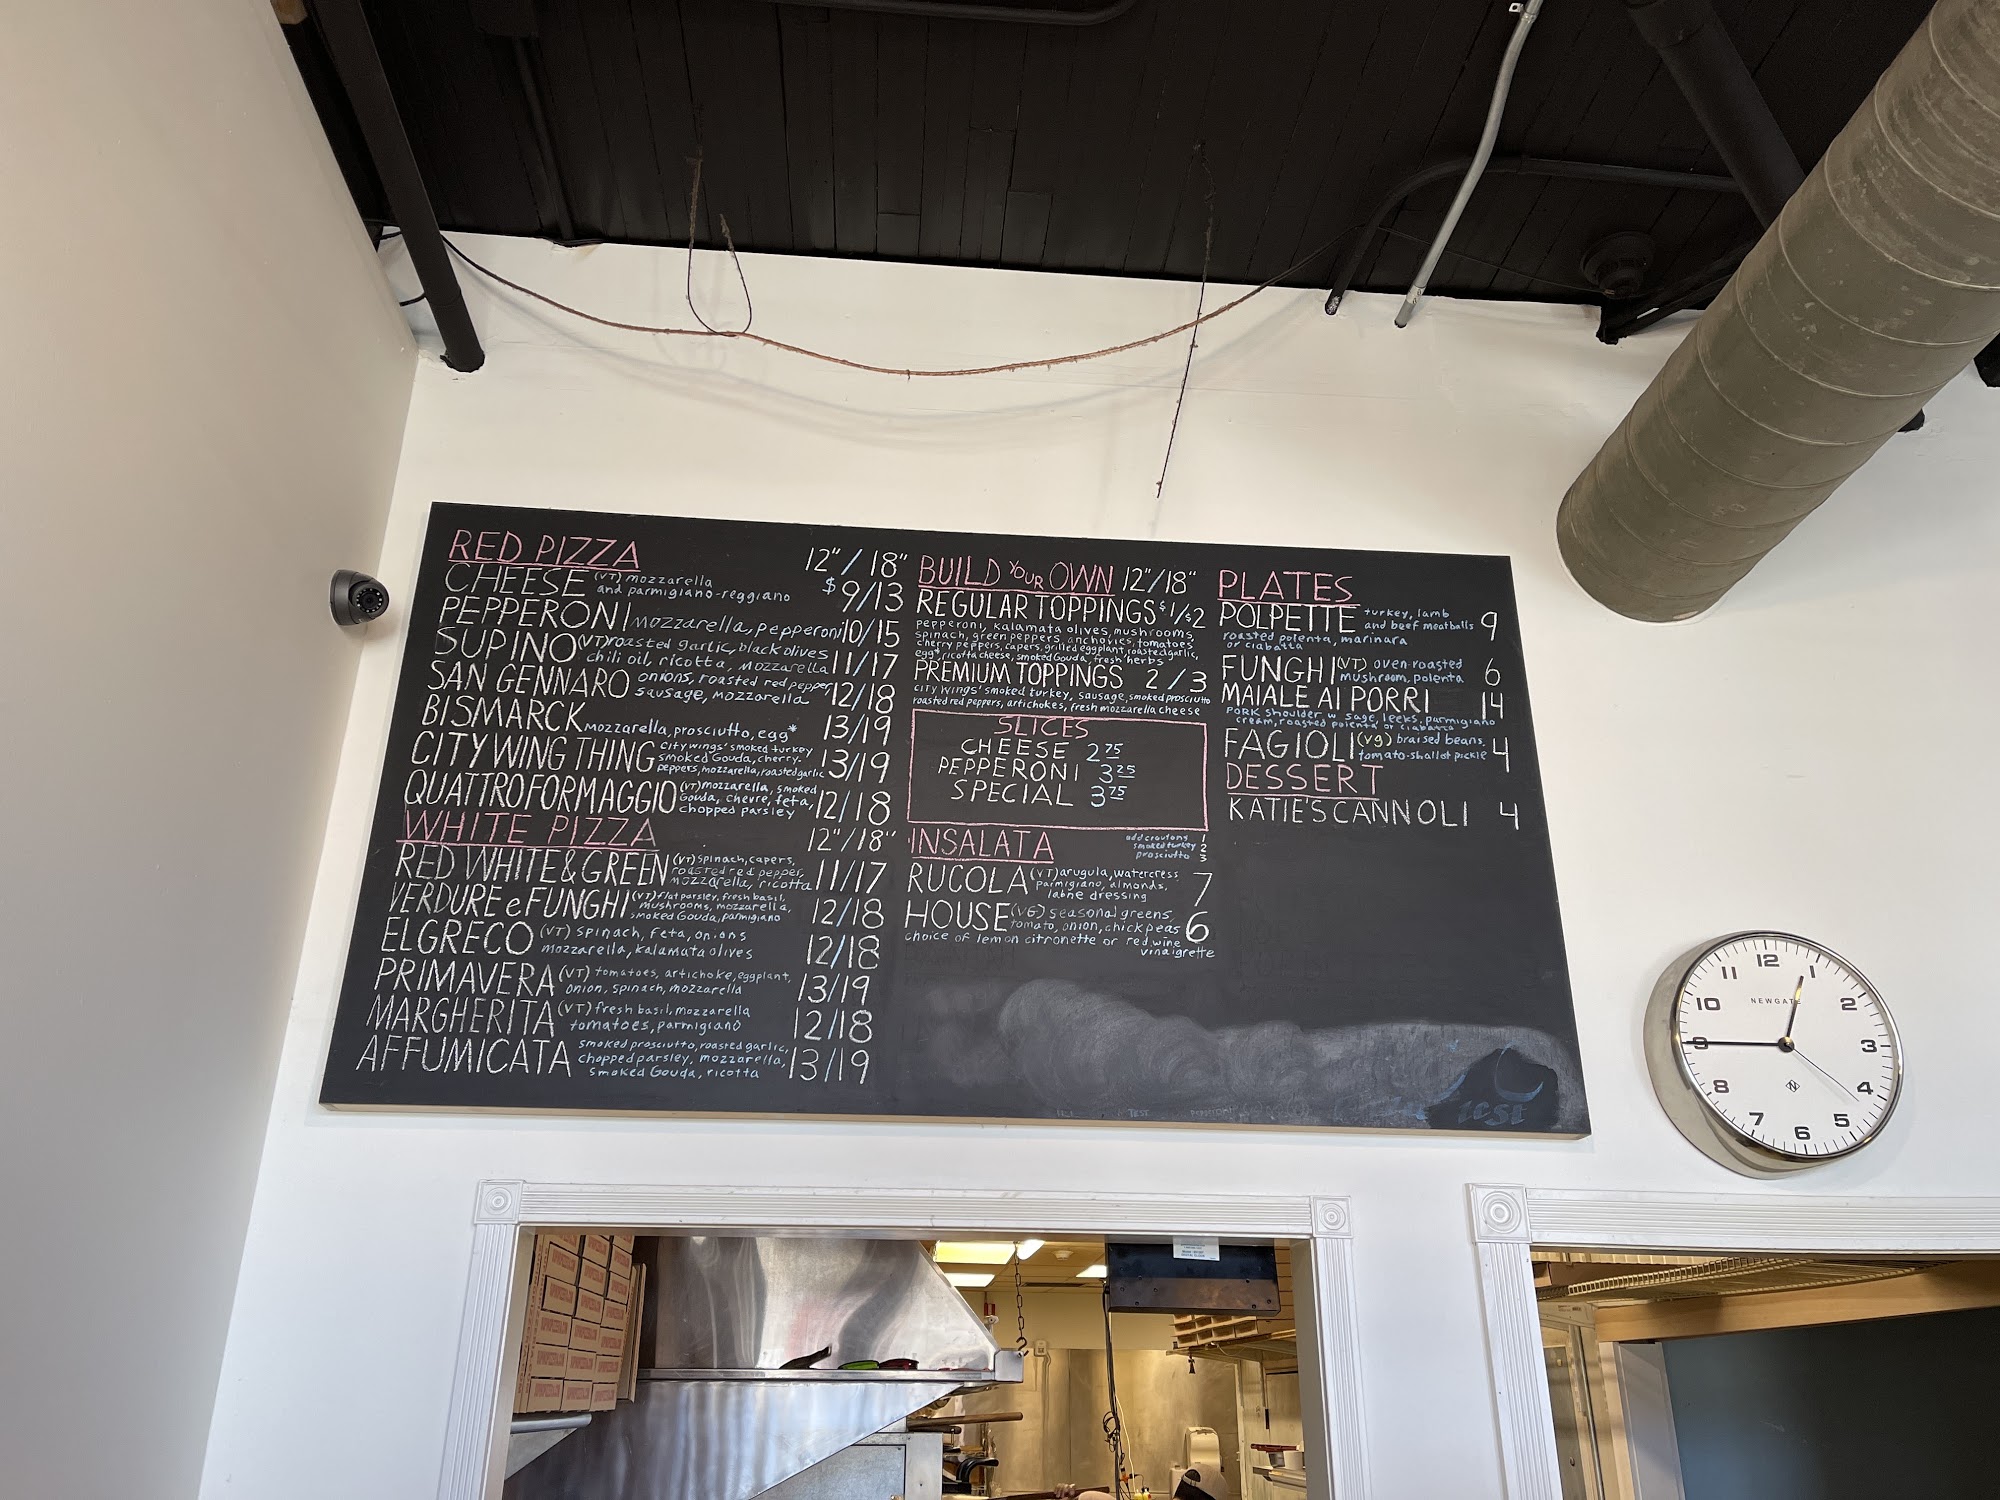 RED PIZZA 12"/18"
CHEESE (VT) mozzarella
and parmigiano-reggiano $9/13
PEPPERONI mozzarella, pepperoni 10/15
SUPINO (VT) roasted garlic, black olives
chili oil, ricotta, mozzarella 11/17
SAN GENNARO onions, roasted red pepper
sausage, mozzarella 12/18
BISMARCK mozzarella, prosciutto, egg* 13/19
CITY WING THING City wings' smoked turkey
smoked Gouda, cherry
peppers, mozzarella, roasted garlic 13/19
QUATTRO FORMAGGIO (VT) mozzarella, smoked
Gouda, chevre, feta,
chopped parsley 12/18
WHITE PIZZA 12"/18"
RED WHITE & GREEN (VT) spinach, capers,
roasted red pepper,
mozzarella, ricotta 11/17
VERDURE e FUNGHI (VT) flat parsley, fresh basil,
mushrooms, mozzarella,
smoked Gouda, parmigiano 12/18
EL GRECO (VT) spinach, feta, onions
mozzarella, kalamata olives 12/18
PRIMAVERA (VT) tomatoes, artichoke, eggplant,
onion, spinach, mozzarella 13/19
MARGHERITA (VT) fresh basil, mozzarella
tomatoes, parmigiano 12/18
AFFUMICATA smoked prosciutto, roasted garlic,
chopped parsley, mozzarella,
smoked Gouda, ricotta 13/19
BUILD YOUR OWN 12"/18"
REGULAR TOPPINGS $1/$2
pepperoni, kalamata olives, mushrooms,
spinach, green peppers, anchovies, tomatoes
cherry peppers, capers, grilled eggplant, roasted garlic,
egg*, ricotta cheese, smoked Gouda, fresh herbs
PREMIUM TOPPINGS 2/3
CITY WINGS' smoked turkey, sausage, smoked prosciutto
roasted red peppers, artichokes, fresh mozzarella cheese
SLICES
CHEESE 2.75
PEPPERONI 3.25
SPECIAL 3.75
INSALATA
add croutons 1
smoked turkey 2
prosciutto 3
RUCOLA (VT) arugula, watercress
parmigiano, almonds,
labne dressing 7
HOUSE (VG) seasonal greens,
tomato, onion, chickpeas 6
choice of lemon citronette or red wine
vinaigrette
PLATES
POLPETTE turkey, lamb
and beef meatballs 9
roasted polenta, marinara
or ciabatta
FUNGHI (VT) oven-roasted
mushroom, polenta 6
MAIALE AI PORRI 14
pork shoulder w sage, leeks, parmigiano
cream, roasted polenta or ciabatta
FAGIOLI (vg) braised beans,
tomato-shallot pickle 4
DESSERT
KATIE'S CANNOLI 4
TEST
12
1
2
3
4
5
6
7
8
9
10
11
NEWGATE
N